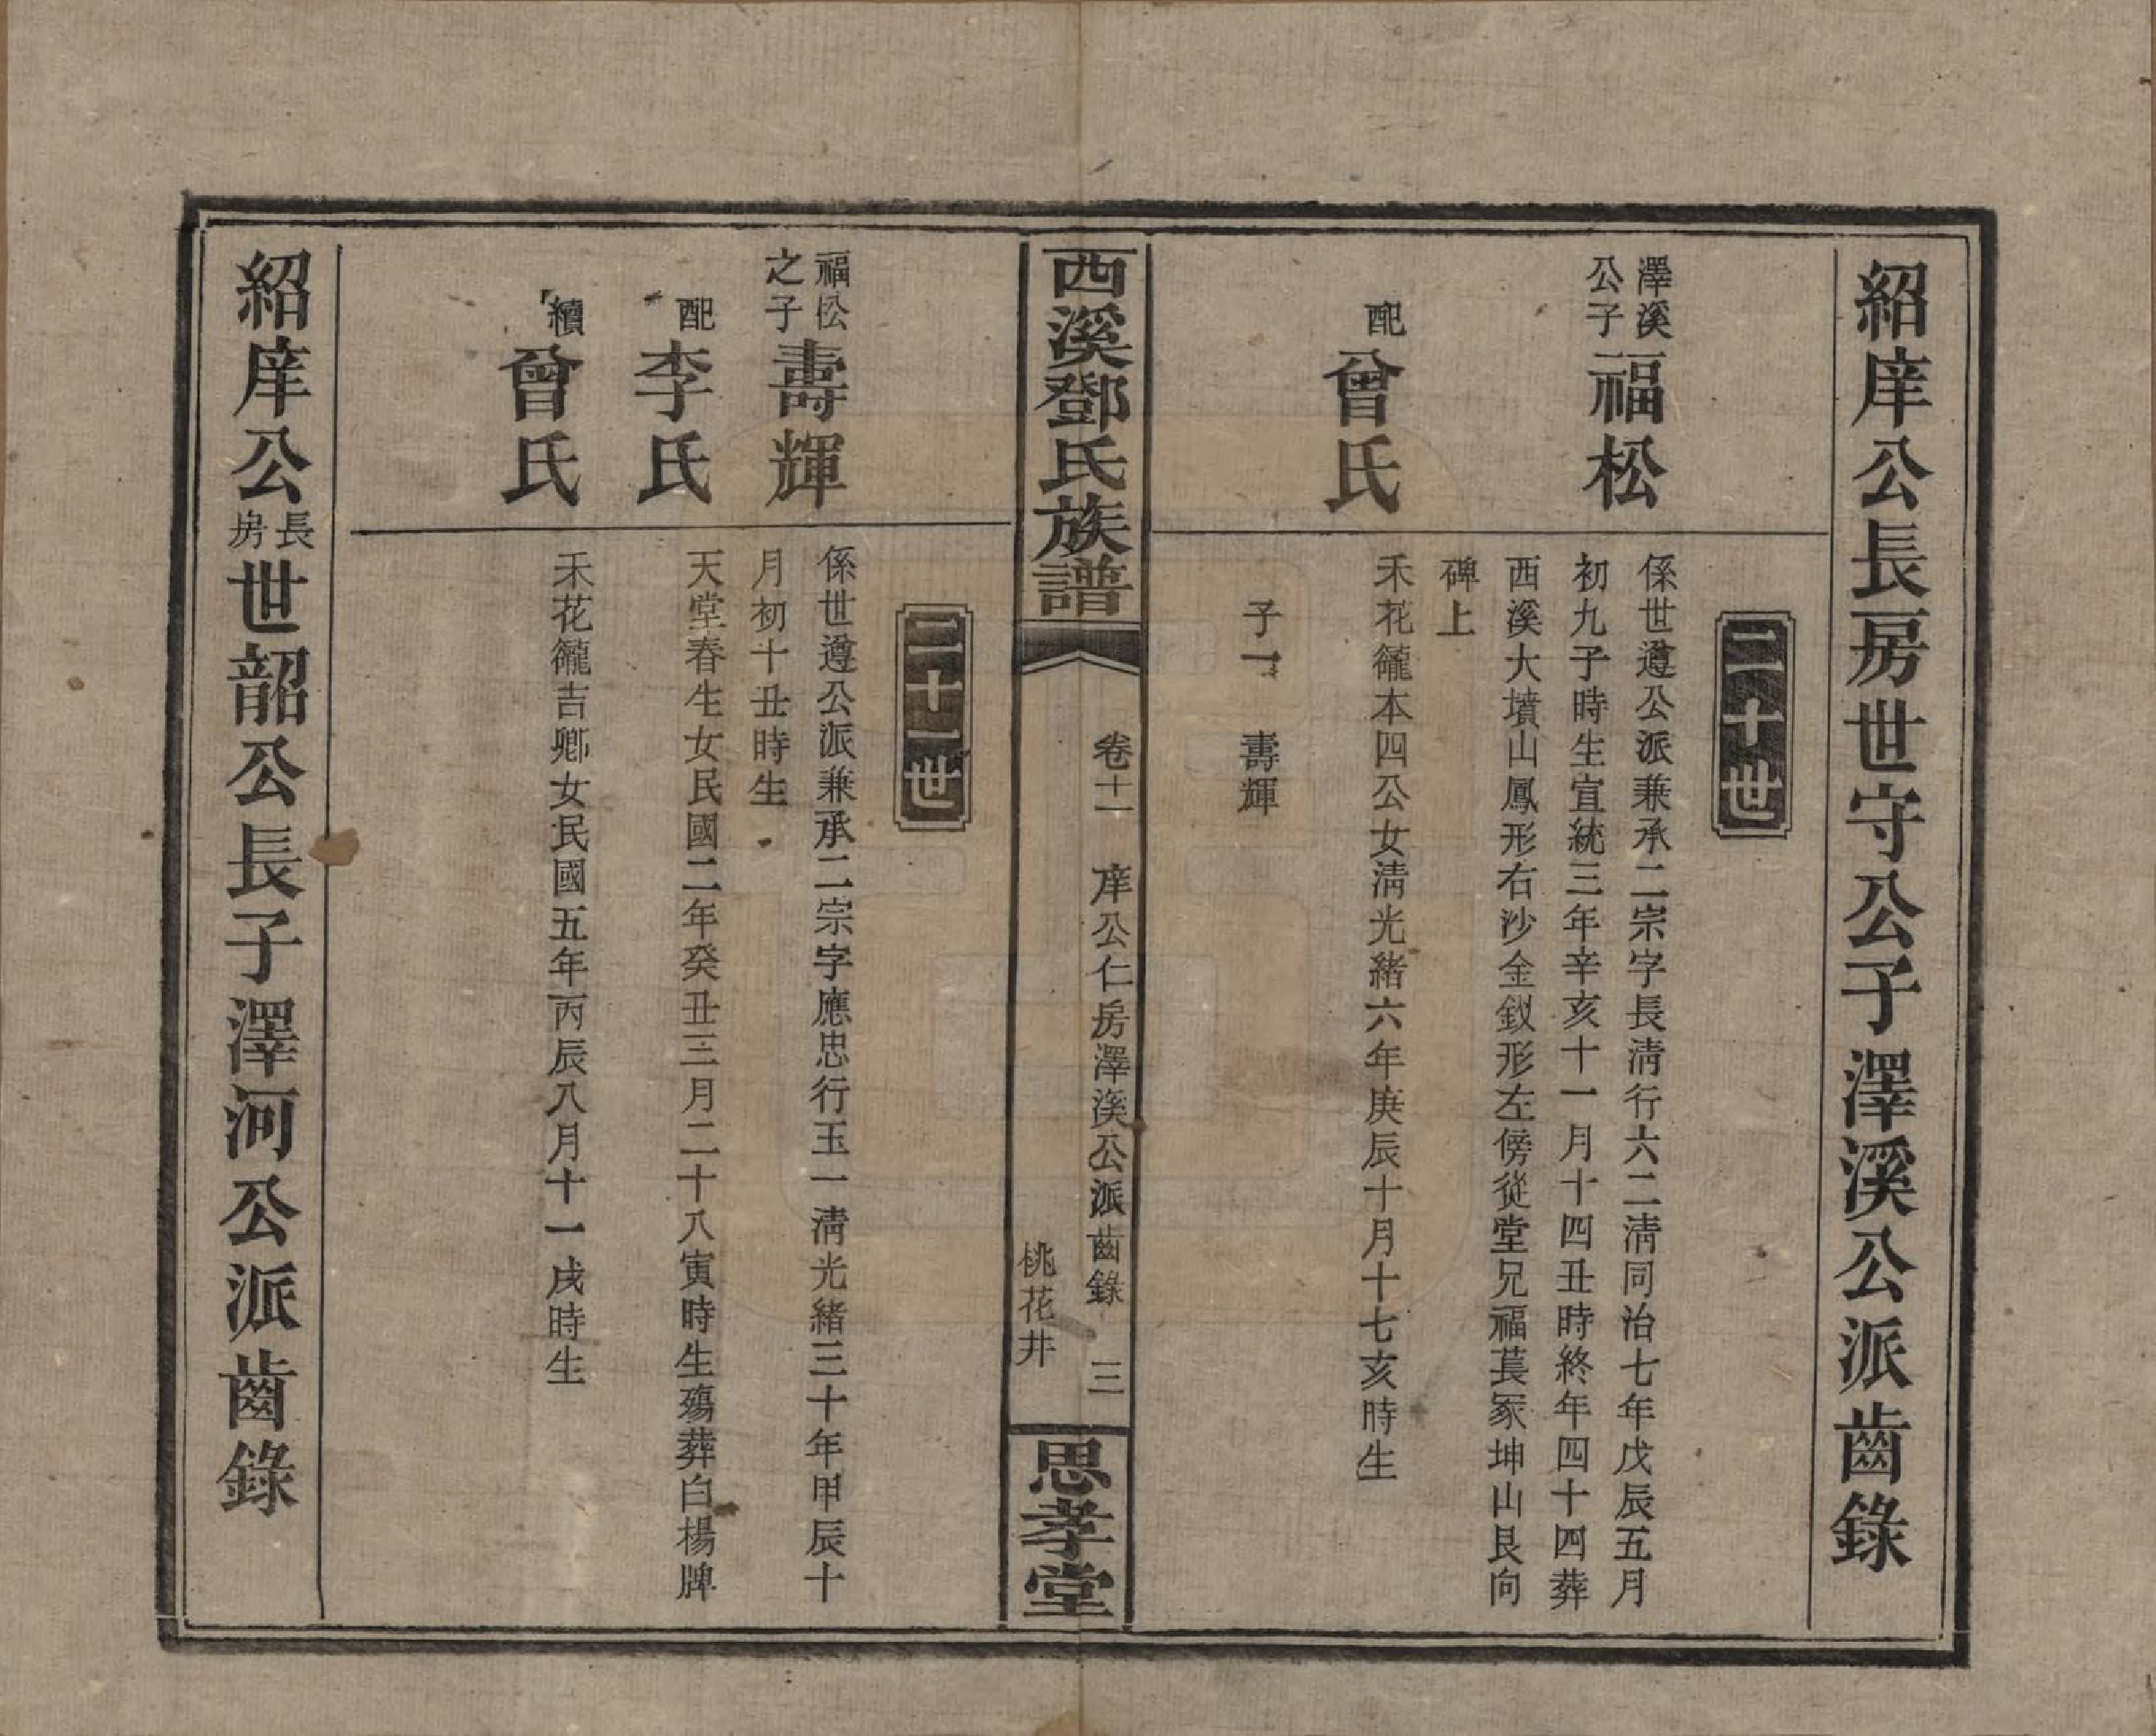 紹庠公長房世守公子澤溪公派齒錄
二十世
澤溪公子福松
係世遵公派兼承二宗字長淸行六二淸同治七年戊辰五月
初九子時生宣統三年辛亥十一月十四丑時終年四十四葬
西溪大墳山鳳形右沙金釵形左傍從堂兄福萇冢坤山艮向
碑上
配曾氏
禾花籠本四公女淸光緒六年庚辰十月十七亥時生
子一 壽輝
西溪鄧氏族譜
卷十一 庠公仁房澤溪公派齒錄 三
桃花井
思孝堂
二十一世
福松之子壽輝
係世遵公派兼承二宗字應忠行玉一淸光緒三十年甲辰十
月初十丑時生
配李氏
天堂春生女民國二年癸丑三月二十八寅時生殤葬白楊牌
續曾氏
禾花籠吉卿女民國五年丙辰八月十一戌時生
紹庠公長房世韶公長子澤河公派齒錄